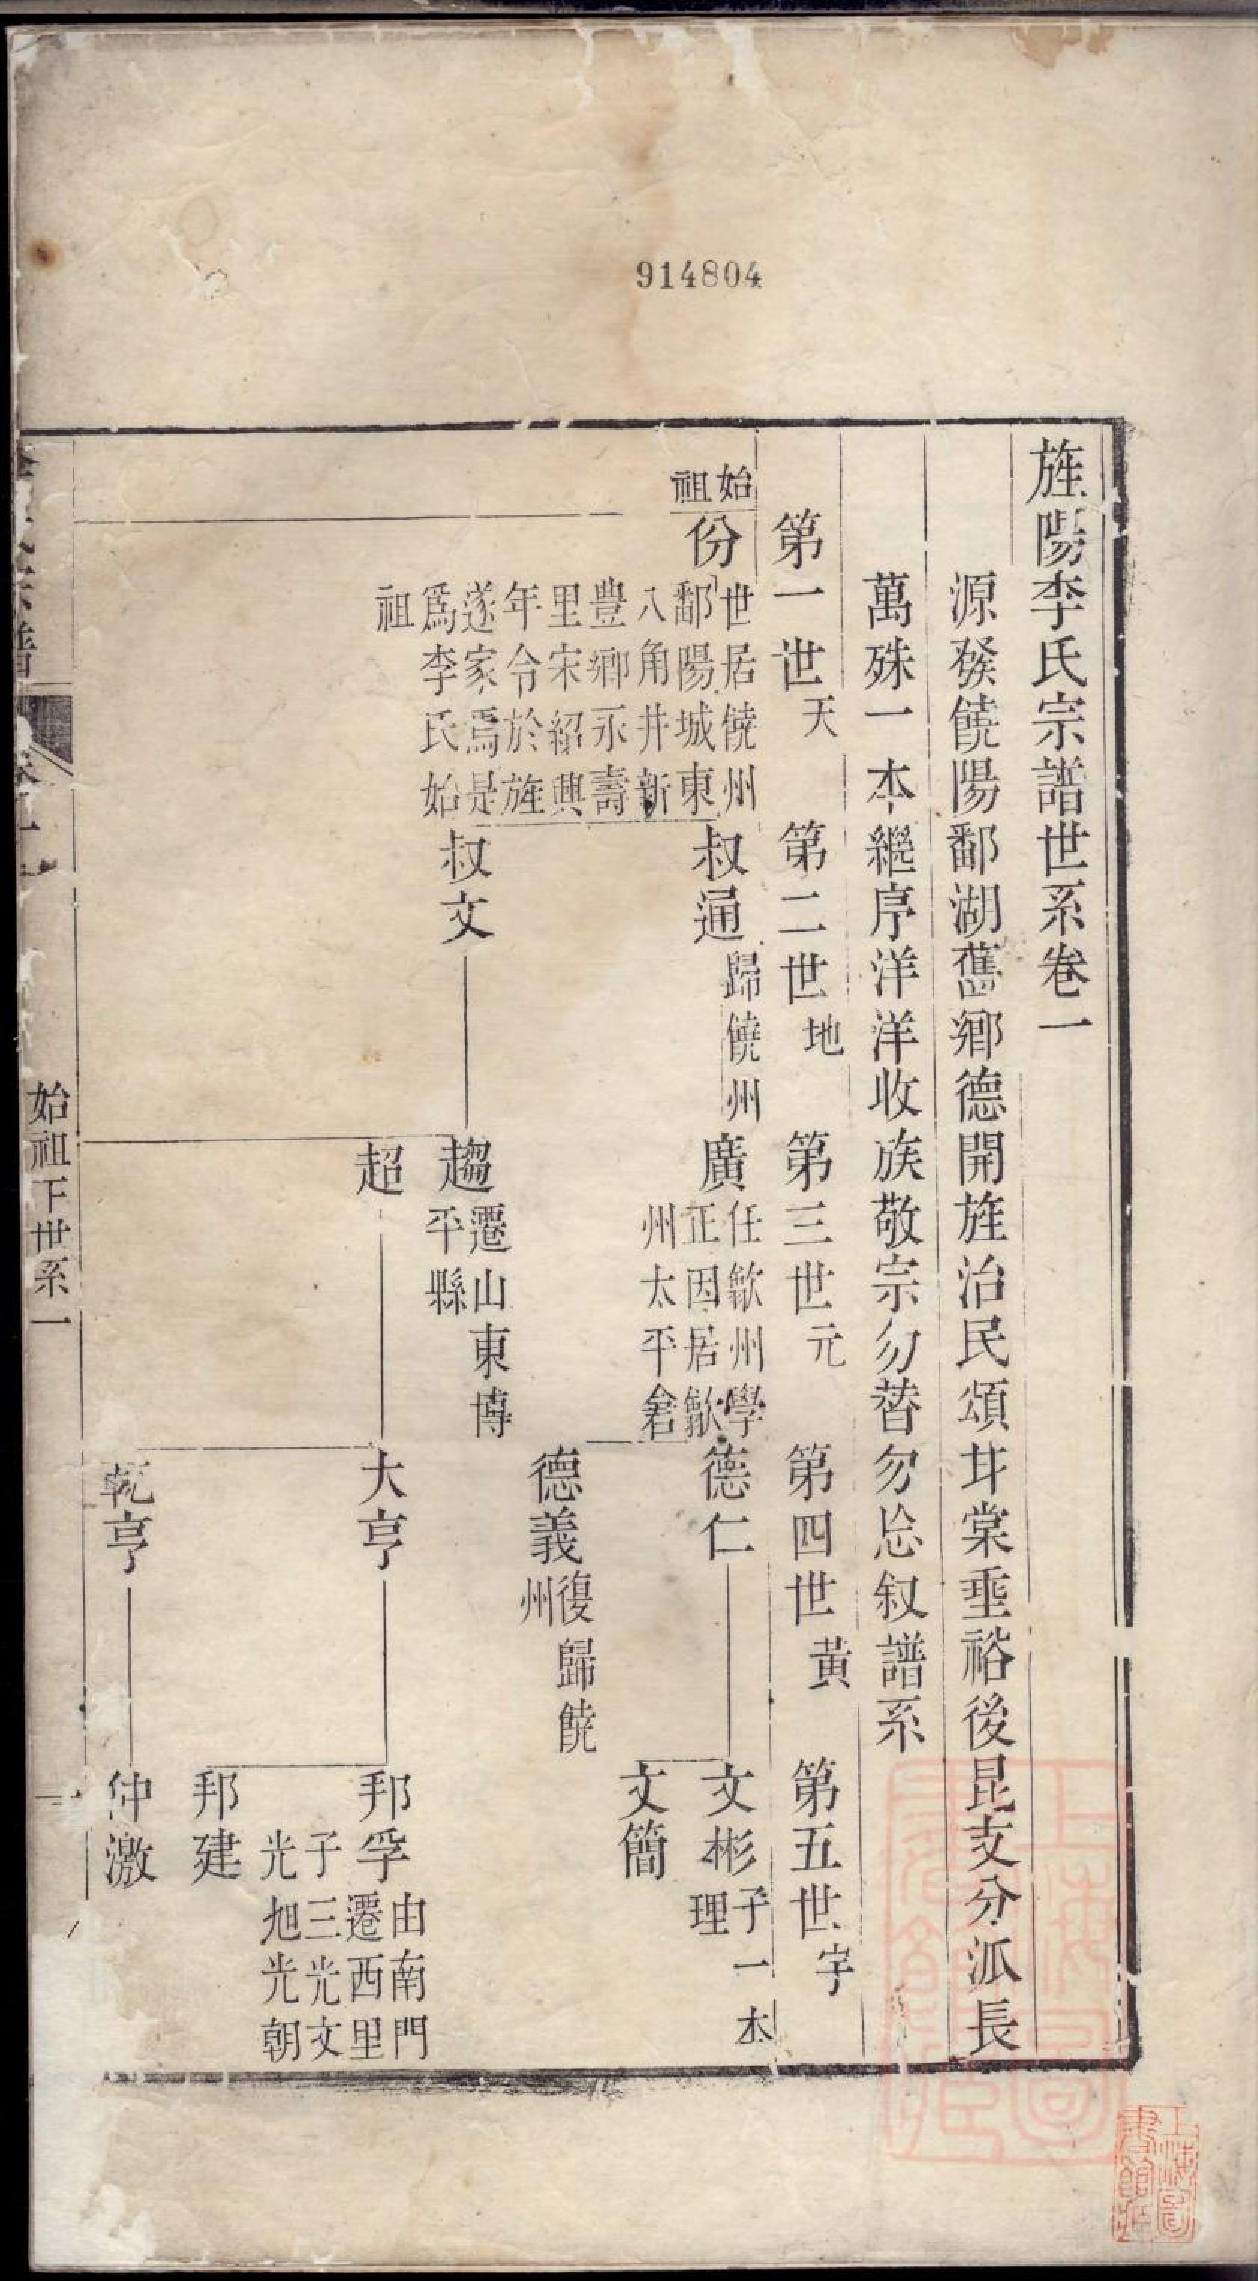 914804
旌陽李氏宗譜世系卷一
源發饒陽鄱湖舊鄉德開旌治民頌甘棠垂裕後昆支分派長
萬殊一本繼序洋洋收族敬宗勿替勿忘叙譜系
第一世天
第二世地
第三世元
第四世黃
第五世宇
始祖
份
世居饒州
鄱陽城東
八角井新
豐鄉永壽
里宋紹興
年令於旌
遂家焉是
爲李氏始
祖
叔通
歸饒州
廣
任歙州學
正因居歙
州太平倉
德仁
文彬
子一本
理
文簡
德義
復歸饒
州
叔文
趨
遷山東博
平縣
超
大亨
邦孚
由南門
遷西里
子三光文
光旭光朝
邦建
乾亨
仲激
始祖下世系一
上海圖書館藏